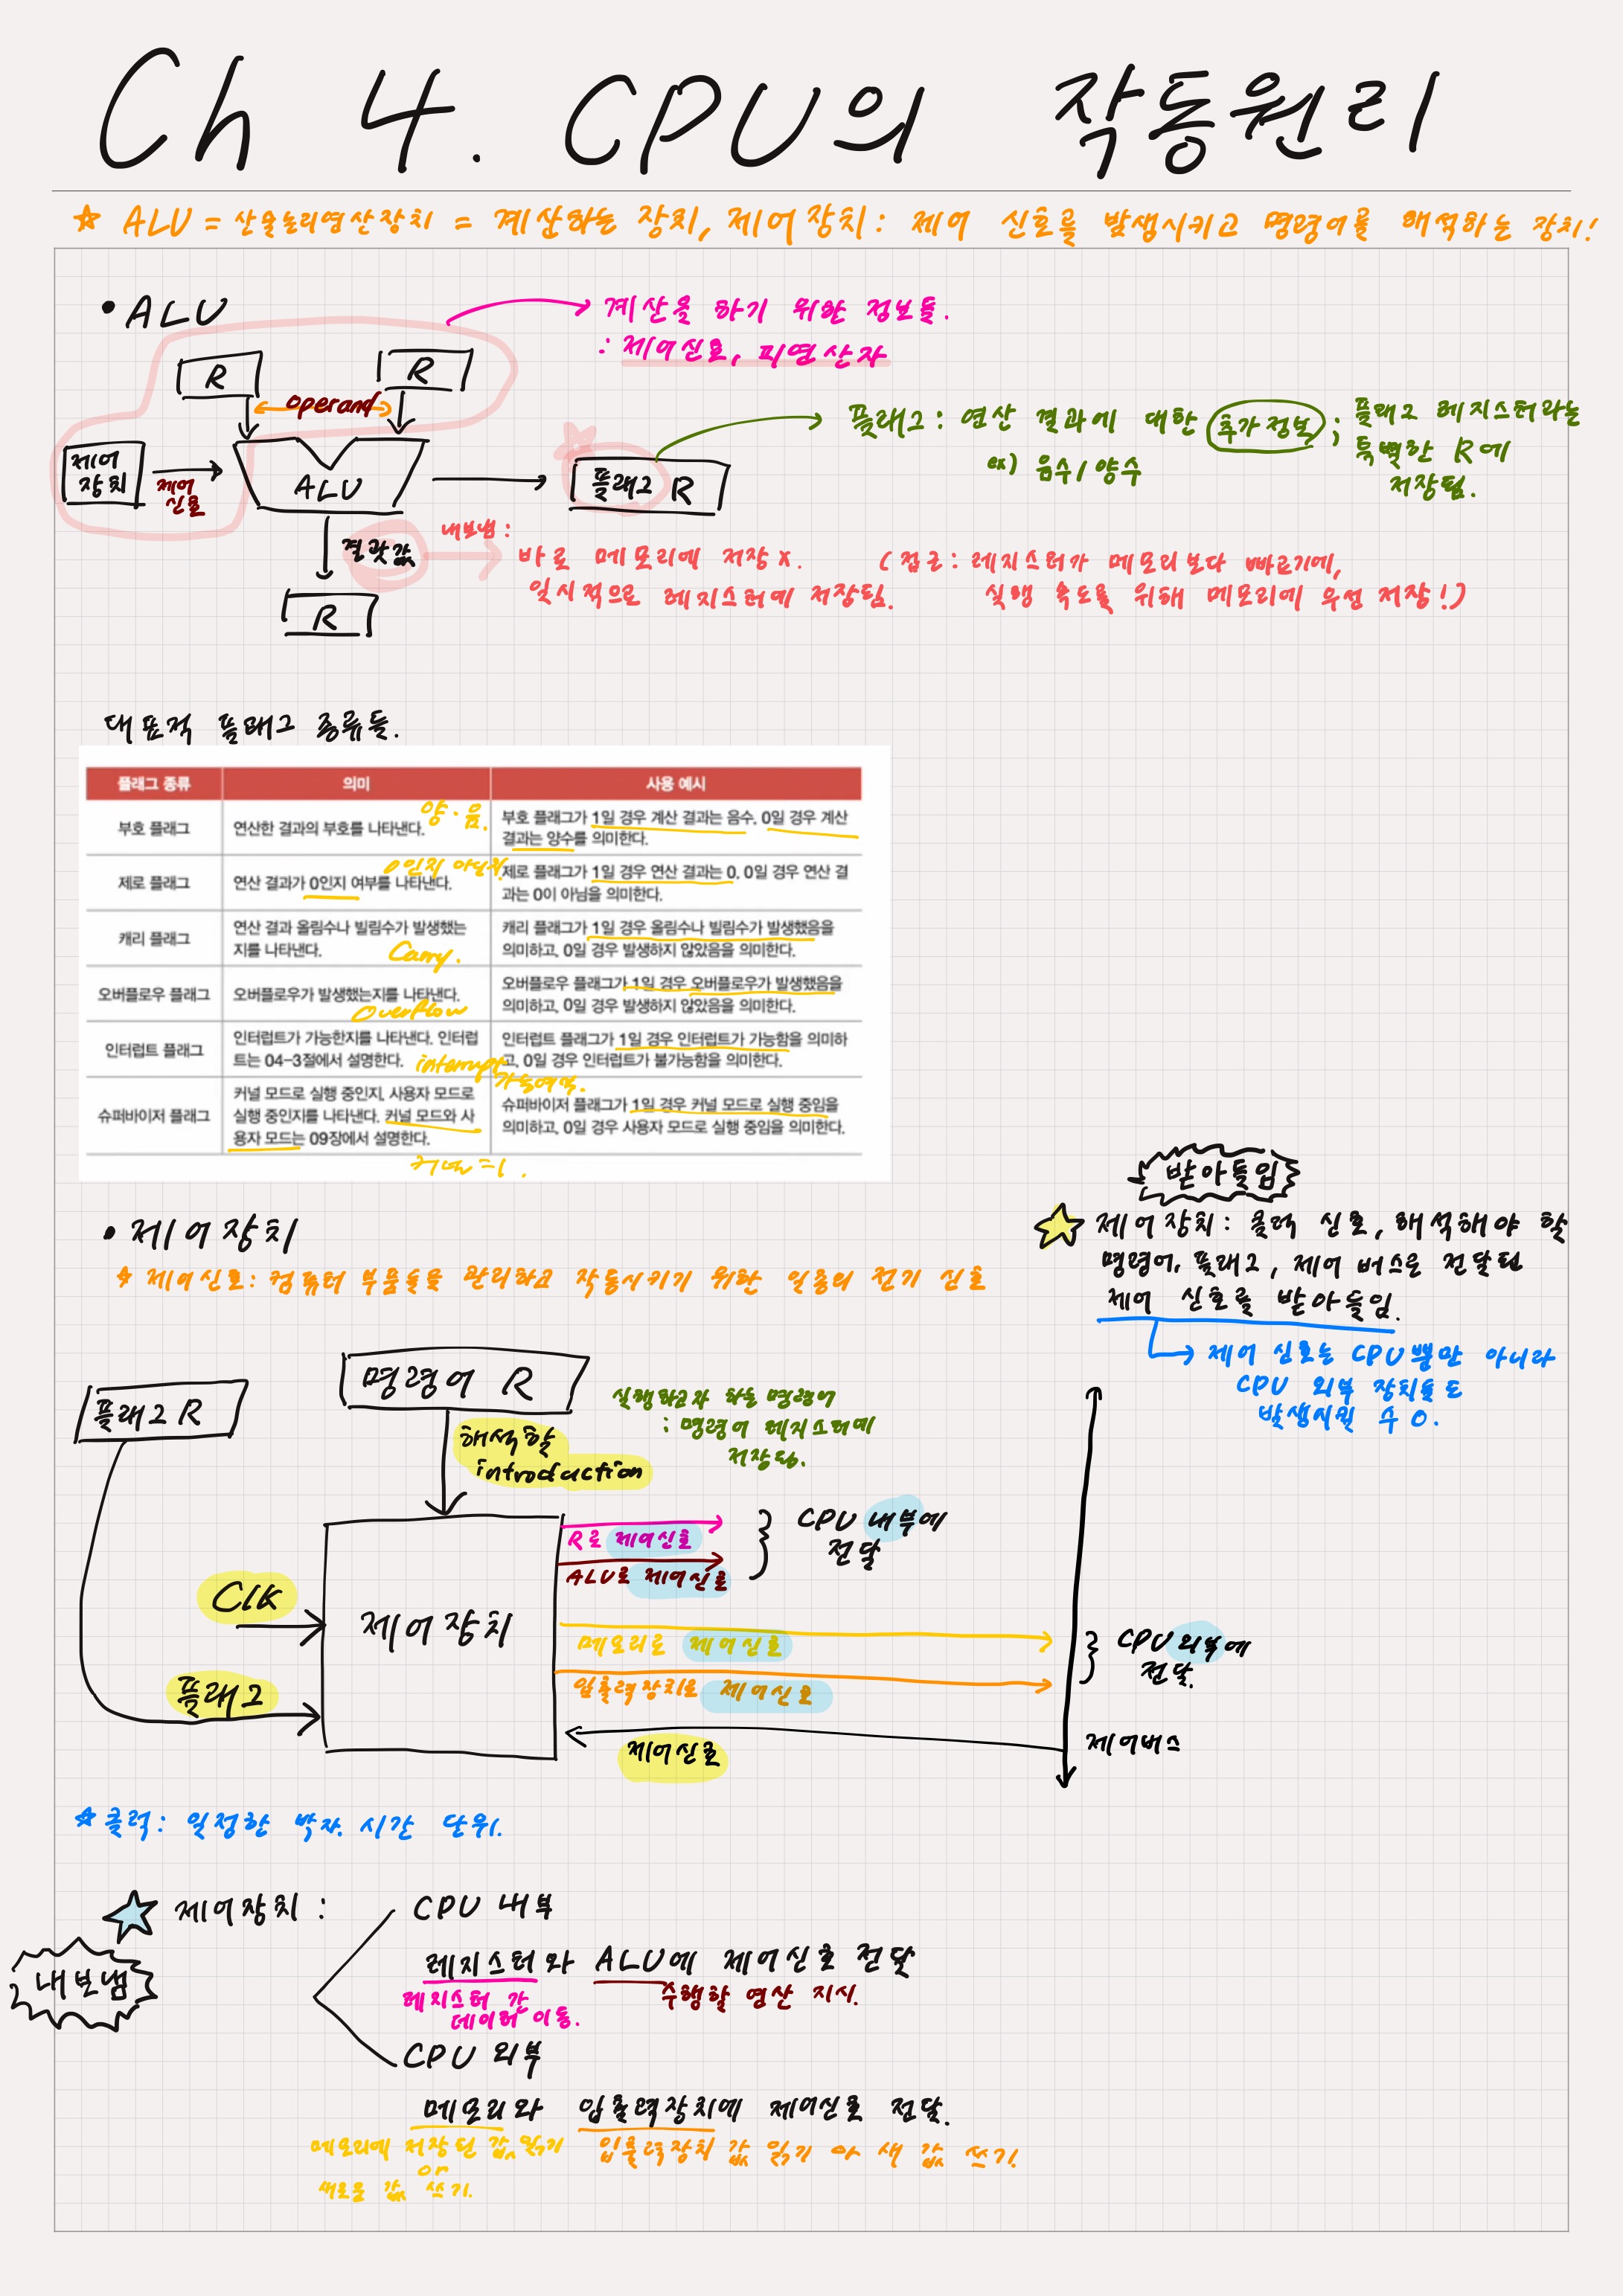 Ch 4. CPU의 작동원리
☆ ALU = 산술논리연산장치 = 계산하는 장치, 제어장치: 제어 신호를 발생시키고 명령어를 해석하는 장치!
• ALU
계산을 하기 위한 정보들.
: 제어신호, 피연산자
R
R
operand
제어
장치
제어
신호
ALU
플래그 R
플래그: 연산 결과에 대한 추가 정보; 플래그 레지스터라는
특별한 R에
저장됨.
ex) 음수/양수
결괏값
내보냄:
바로 메모리에 저장 X.
일시적으로 레지스터에 저장됨.
(접근: 레지스터가 메모리보다 빠르기에,
실행 속도를 위해 메모리에 우선 저장!)
R
대표적 플래그 종류들.
플래그 종류 의미 사용 예시
부호 플래그 연산한 결과의 부호를 나타낸다. 양·음. 부호 플래그가 1일 경우 계산 결과는 음수, 0일 경우 계산
결과는 양수를 의미한다.
제로 플래그 연산 결과가 0인지 여부를 나타낸다. 0인지 아닌지. 제로 플래그가 1일 경우 연산 결과는 0, 0일 경우 연산 결
과는 0이 아님을 의미한다.
캐리 플래그 연산 결과 올림수나 빌림수가 발생했는
지를 나타낸다. Carry.
캐리 플래그가 1일 경우 올림수나 빌림수가 발생했음을
의미하고, 0일 경우 발생하지 않았음을 의미한다.
오버플로우 플래그 오버플로우가 발생했는지를 나타낸다.
Overflow
오버플로우 플래그가 1일 경우 오버플로우가 발생했음을
의미하고, 0일 경우 발생하지 않았음을 의미한다.
인터럽트 플래그 인터럽트가 가능한지를 나타낸다. 인터럽
트는 04-3절에서 설명한다. interrupt
가능여부.
인터럽트 플래그가 1일 경우 인터럽트가 가능함을 의미하
고, 0일 경우 인터럽트가 불가능함을 의미한다.
슈퍼바이저 플래그 커널 모드로 실행 중인지, 사용자 모드로
실행 중인지를 나타낸다. 커널 모드와 사
용자 모드는 09장에서 설명한다.
커널=1.
슈퍼바이저 플래그가 1일 경우 커널 모드로 실행 중임을
의미하고, 0일 경우 사용자 모드로 실행 중임을 의미한다.
• 제어장치
☆ 제어신호: 컴퓨터 부품들을 관리하고 작동시키기 위한 일종의 전기 신호
받아들임
☆ 제어장치: 클럭 신호, 해석해야 할
명령어, 플래그, 제어 버스로 전달된
제어 신호를 받아들임.
제어 신호는 CPU뿐만 아니라
CPU 외부 장치들도
발생시킬 수 O.
플래그 R
명령어 R
해석할
introduction
실행하고자 하는 명령어
: 명령어 레지스터에
저장됨.
Clk
플래그
제어장치
R로 제어신호
ALU로 제어신호
CPU 내부에
전달
메모리로 제어신호
입출력장치로 제어신호
CPU 외부에
전달.
제어신호
제어버스
☆ 클럭: 일정한 박자. 시간 단위.
☆ 제어장치:
내보냄
CPU 내부
레지스터와 ALU에 제어신호 전달
레지스터 간
데이터 이동.
수행할 연산 지시.
CPU 외부
메모리와 입출력장치에 제어신호 전달.
메모리에 저장된 값 읽기
or
새로운 값 쓰기.
입출력장치 값 읽기 or 새 값 쓰기.